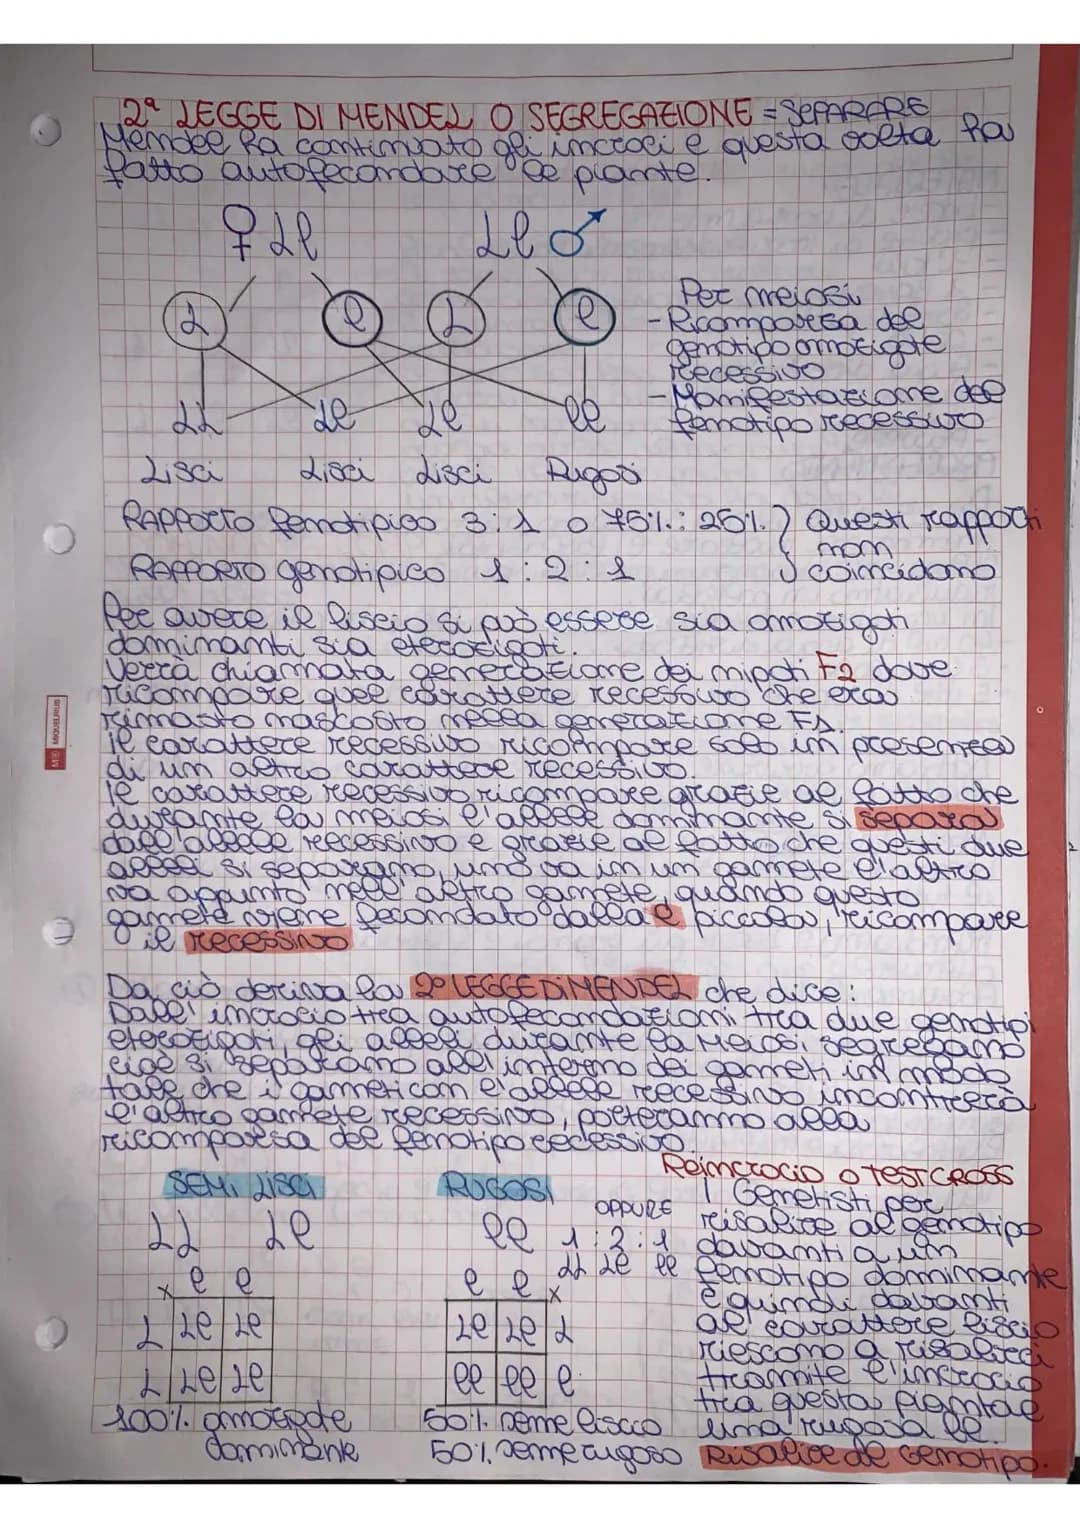 2ª LEGGE DI MENDEL O SEGREGAZIONE = SEPARARE
Mendel ha continuato gli incroci e questa volta ha
fatto autofecondare le piante.
♀ Ll Ll ♂
L l L l
LL Ll Ll ll
Lisci Lisci Lisci Rugosi
Per meiosi
- Ricomparsa del
genotipo omozigote
recessivo
- Manifestazione del
fenotipo recessivo
RAPPORTO fenotipico 3:1 o 75%:25% } Questi rapporti
non
RAPPORTO genotipico 1:2:1 coincidono
Per avere il liscio si può essere sia omozigoti
dominanti sia eterozigoti.
Verrà chiamata generazione dei nipoti F2 dove
ricompare quel carattere recessivo che era
rimasto nascosto nella generazione F1.
il carattere recessivo ricompare solo in presenza
di un altro carattere recessivo.
il carattere recessivo ricompare grazie al fatto che
durante la meiosi l'allele dominante si separa
dall'allele recessivo e grazie al fatto che questi due
alleli si separano, uno va in un gamete e l'altro
va appunto nell'altro gamete, quando questo
gamete viene fecondato dalla l piccola, ricompare
il recessivo
Da ciò deriva la 2º LEGGE DI MENDEL che dice:
Dall'incrocio tra autofecondazioni tra due genotipi
eterozigoti, gli alleli durante la meiosi segregano
cioè si separano all'interno dei gameti in modo
tale che i gameti con l'allele recessivo incontrerà
l'altro gamete recessivo, porteranno alla
ricomparsa del fenotipo recessivo.
SEMI LISCI RUGOSI
LL Ll ll
OPPURE
1:2:1
LL Ll ll
x l l
L Ll Ll
L Ll Ll
100% omozigote
dominante
l l x
Ll Ll L
ll ll l
50% seme liscio
50% seme rugoso
Reincrocio o TESTCROSS
I Genetisti per
risalire al genotipo
davanti a un
fenotipo dominante
e quindi davanti
al carattere liscio
riescono a risalirci
tramite l'incrocio
tra questa pianta e
una rugosa ll.
Risalire al Genotipo.
MIQUELRIUS